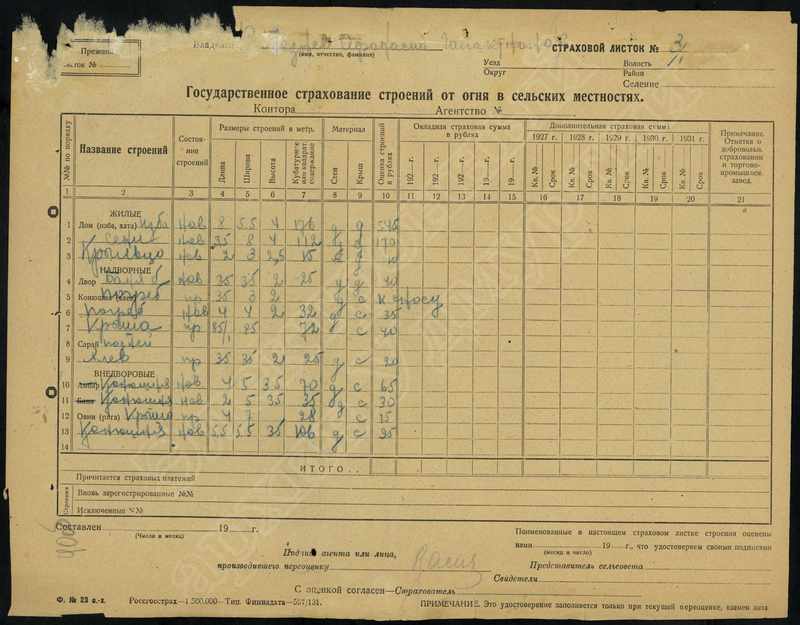 Прежний
листок №
Владелец
(имя, отчество, фамилия)
СТРАХОВОЙ ЛИСТОК № 3
Уезд Волость
Округ Район
Селение
Государственное страхование строений от огня в сельских местностях.
Контора Агентство №
№№ по порядку
Название строений
Состояние строений
Размеры строений в метр.
Длина Ширина Высота Кубатурное или квадрат. содержание
Материал
Стен Крыш
Оценка строений в рублях
Окладная страховая сумма в рублях
192 — г. 192 — г. 192 — г. 19 — г. 19 — г.
Дополнительная страховая сумма
1927 г. 1928 г. 1929 г. 1930 г. 1931 г.
Кв. № Срок Кв. № Срок Кв. № Срок Кв. № Срок Кв. № Срок
Примечание. Отметки о добровольн. страховании и торгово-промышлен. завед.
1 2 3 4 5 6 7 8 9 10 11 12 13 14 15 16 17 18 19 20 21
ЖИЛЫЕ
1 Дом (изба, хата) Изба Нов 8 5.5 4 176 д д
2 Сени Нов 35 8 4 112 д д 170
3 Крыльцо нов 2 3 2,5 15 д д 10
НАДВОРНЫЕ
4 Двор Нов 35 35 2 25 д д
5 Конюшня погреб пр 35 3 2 д с к сносу
6 погреб Нов 4 4 2 32 д с 35
7 Крыша пр 85 85 72 с 40
8 Сарай
9 Хлев пр 35 35 2 25 д с 20
ВНЕДВОРОВЫЕ
10 Амбар Конюшня Нов 4 5 3.5 70 д с 65
11 Баня Конюшня нов 2 5 35 35 д с 30
12 Овин (рига) Крыша пр 4 7 28 с 15
13 Конюшня нов 5.5 5.5 35 106 д с 95
14
ИТОГО . .
Причитается страховых платежей
Вновь зарегистрированные №№
Исключенные №№
Составлен 19 г.
(Число и месяц)
Поименованные в настоящем страховом листке строения оценены
нами 19 г., что удостоверяем своими подписями
(месяц и число)
Подпись агента или лица,
производившего переоценку
Представитель сельсовета
Свидетели
С оценкой согласен—Страхователь
Ф. № 23 о.-х. Росгосстрах—1.500.000—Тип. Финиздата—597/131.
ПРИМЕЧАНИЕ. Это удостоверение заполняется только при текущей переоценке, взамен акта